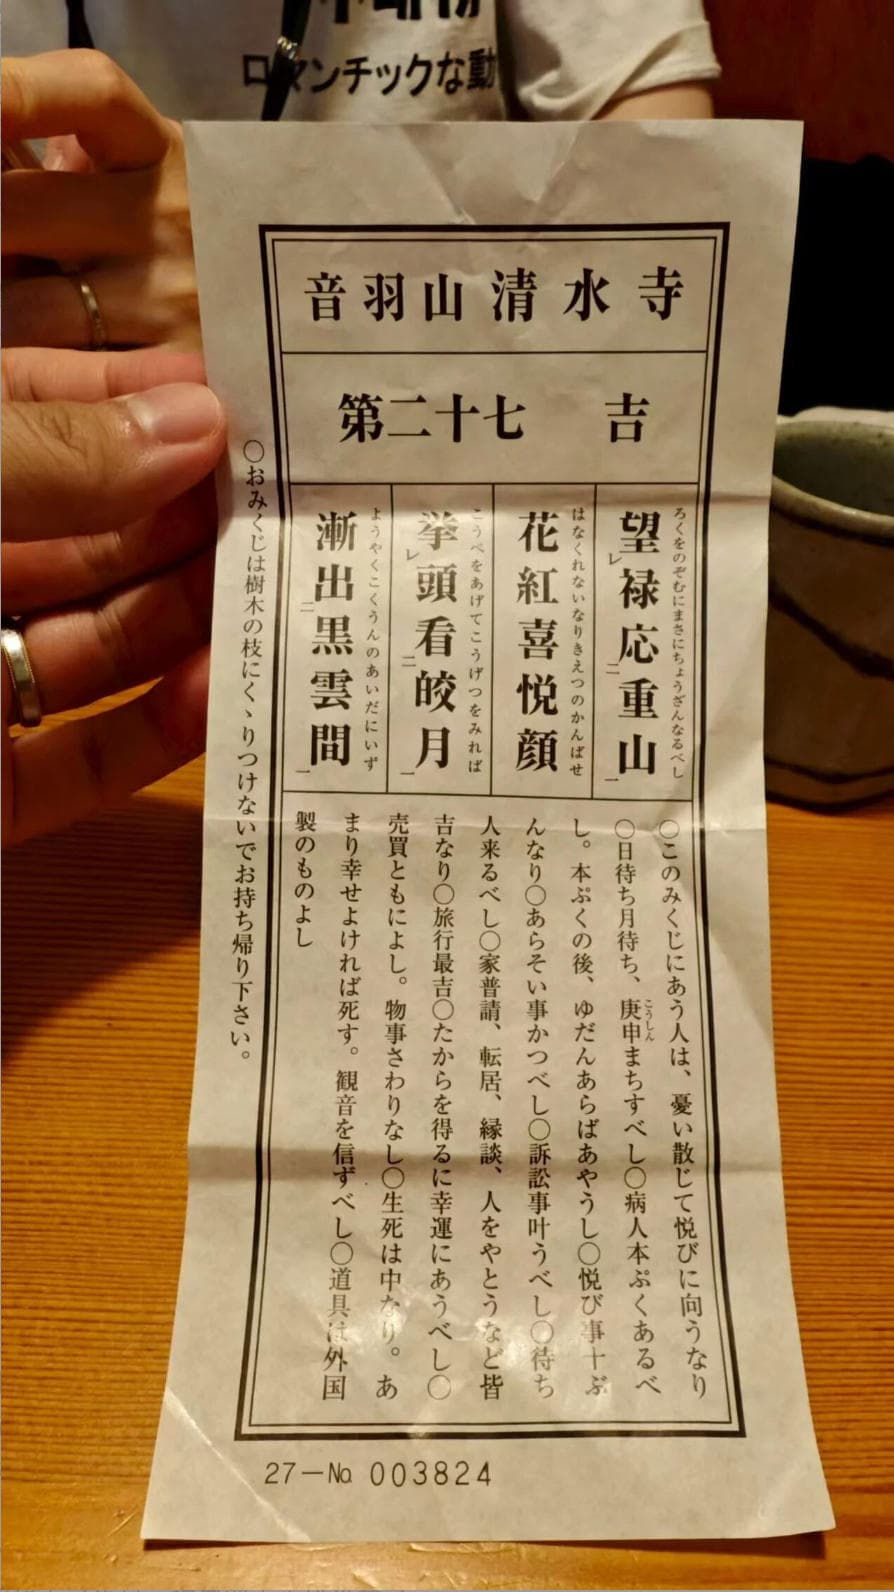 ロマンチックな動
音羽山清水寺
第二十七 吉
ろくをのぞむにまさにちょうざんなるべし
望レ禄応二重山一
はなくれないなりきえつのかんばせ
花紅喜悦顔
こうべをあげてこうげつをみれば
挙レ頭看二皎月一
ようやくこくうんのあいだにいず
漸出二黒雲間一
〇このみくじにあう人は、憂い散じて悦びに向うなり
〇日待ち月待ち、庚申まちすべし〇病人本ぷくあるべ
こうしん
し。本ぷくの後、ゆだんあらばあやうし〇悦び事十ぶ
んなり〇あらそい事かつべし〇訴訟事叶うべし〇待ち
人来るべし〇家普請、転居、縁談、人をやとうなど皆
吉なり〇旅行最吉〇たからを得るに幸運にあうべし〇
売買ともによし。物事さわりなし〇生死は中なり。あ
まり幸せよければ死す。観音を信ずべし〇道具は外国
製のものよし
〇おみくじは樹木の枝にくゝりつけないでお持ち帰り下さい。
27-№ 003824